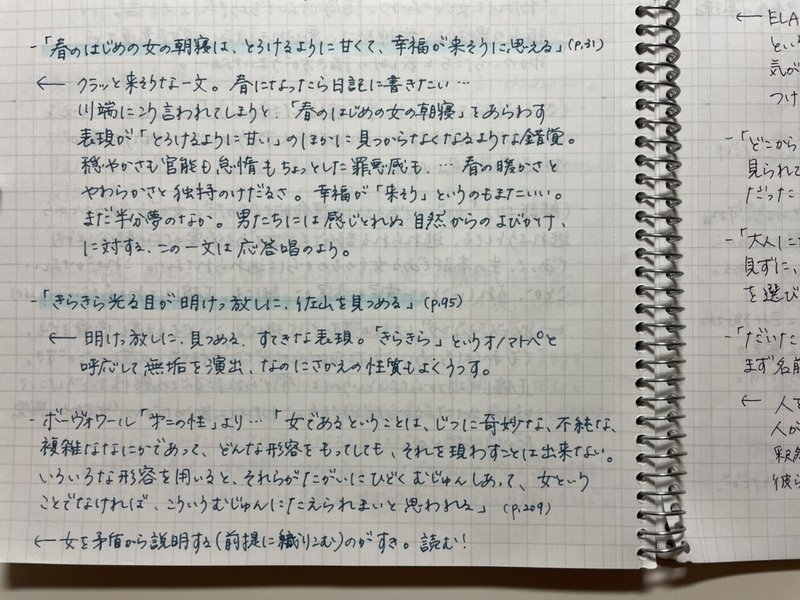 -「春のはじめの女の朝寝は、とろけるように甘くて、幸福が来そうに思える」(p.31)
← クラッと来そうな一文。春になったら日記に書きたい…
川端にこう言われてしまうと、「春のはじめの女の朝寝」をあらわす
表現が「とろけるように甘い」のほかに見つからなくなるような錯覚。
穏やかさも官能も怠惰もちょっとした罪悪感も、… 春の暖かさと
やわらかさと独特のけだるさ。幸福が「来そう」というのもまたいい。
まだ半分夢のなか。男たちには感じとれぬ自然からのよびかけ、
に対する、この一文は応答唱のよう。
-「きらきら光る目が明けっ放しに、佐山を見つめる」(p.95)
← 明けっ放しに、見つめる、すてきな表現。「きらきら」というオノマトペと
呼応して無垢を演出、なのにさかえの性質もよくうつす。
- ボーヴォワール「第二の性」より…「女であるということは、じつに奇妙な、不純な、
複雑ななにかであって、どんな形容をもってしても、それを現わすことは出来ない。
いろいろな形容を用いると、それらがたがいにひどくむじゅんしあって、女という
ことでなければ、こういうむじゅんにたえられまいと思われる」(p.209)
← 女を矛盾から説明する(前提に織りこむ)のがすき。読む!
← ELA
という
気が
つけ
-「どこから
見られて
だった
-「大人に
見ずに、
を選び
-「だいた
まず名前
← 人
人が
釈然
彼ら